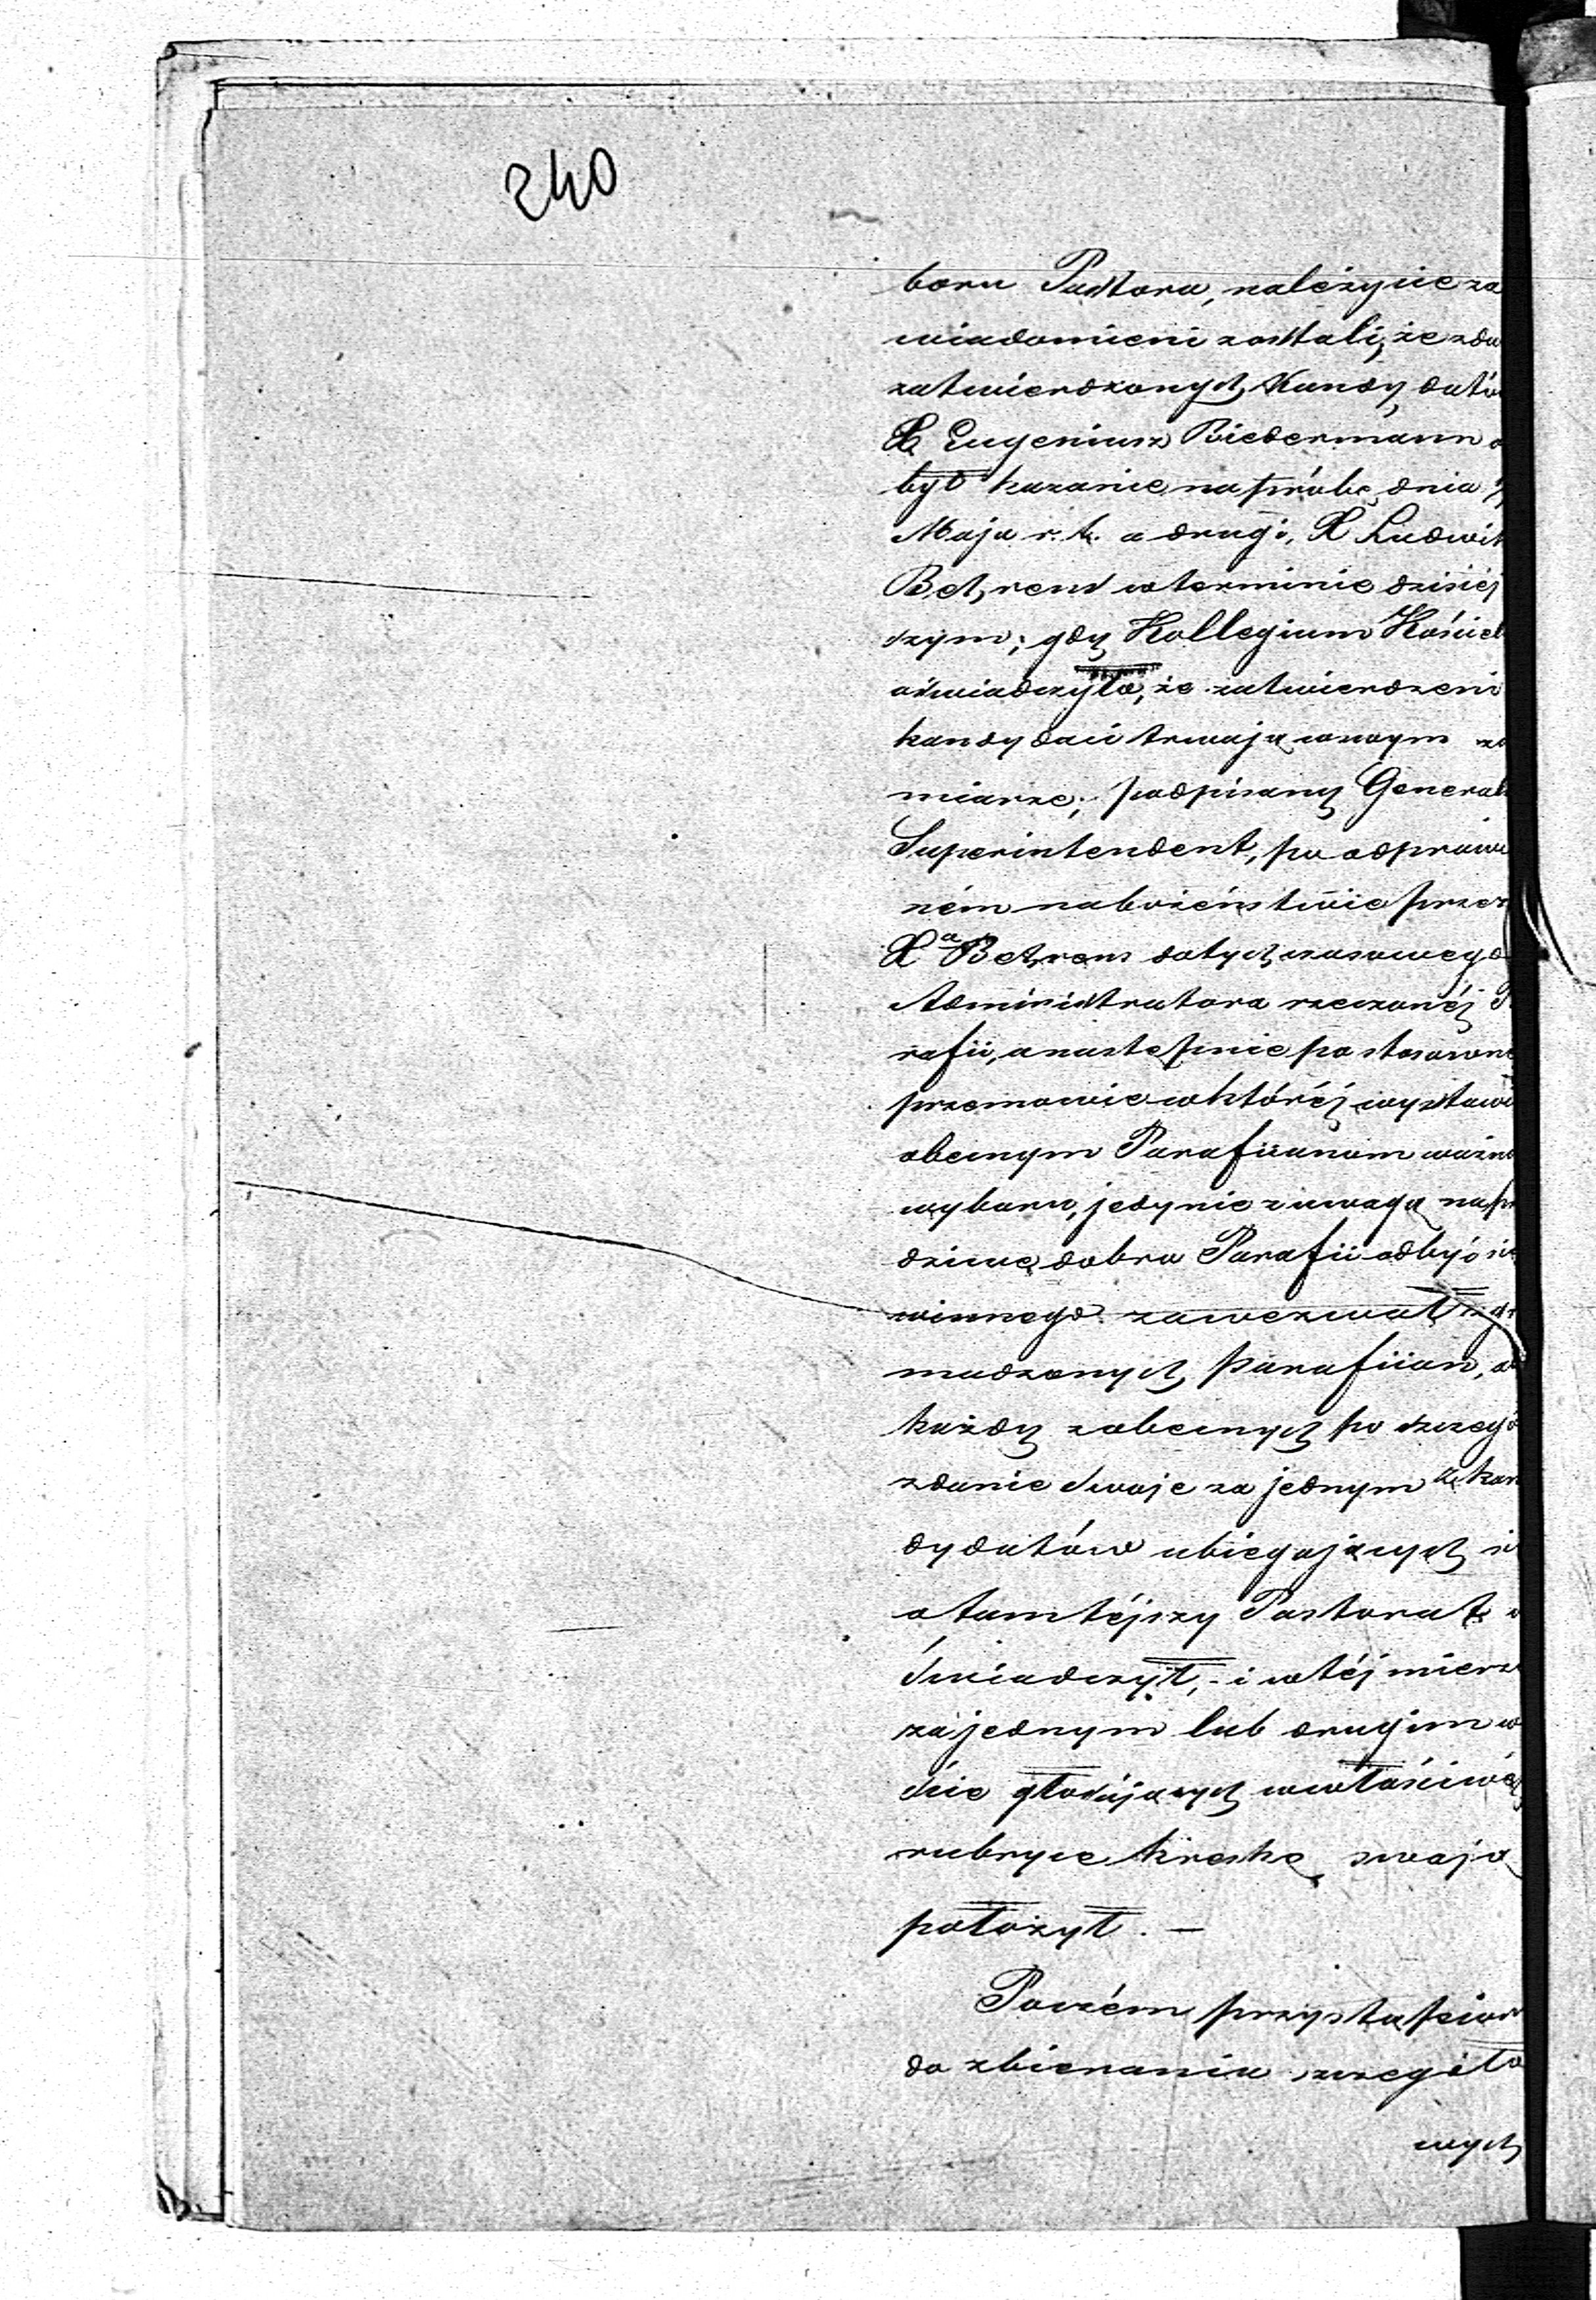 240
boru Pastora, należycie za
wiadomieni zostali, że z dw
zatwierdzonych Kandydatów
X Eugeniusz Biedermann o
był kazanie na próbę dnia
Maja r. b. a drugi, X Ludwik
Behrens w terminie dzisiéj
szym; gdy Kollegium Kościel
oświadczyło, że zatwierdzeni
kandydaci trwają w swym za
miarze; podpisany Generaln
Superintendent, po odprawio
ném nabożeństwie przez
Xa Behrens dotychczasowego
Administratora rzeczonéj P
rafii, a następnie po stosowné
przemowie w któréj wystawi
obecnym Parafiianom ważno
wyboru, jedynie z uwagą na pr
dziwe dobro Parafii odbyć się
winnego zawezwał zgr
madzonych parafiian, a
każdy z obecnych po szczegó
zdanie swoje za jednym z kan
dydatów ubiegających si
o tamtéjszy Pastorat o
świadczył, i w téj mierze
za jednym lub drugim w
ście głosujących w właściwéj
rubryce kreskę swoją
położył. —
Poczém przystąpion
do zbierania szczegóło
wych